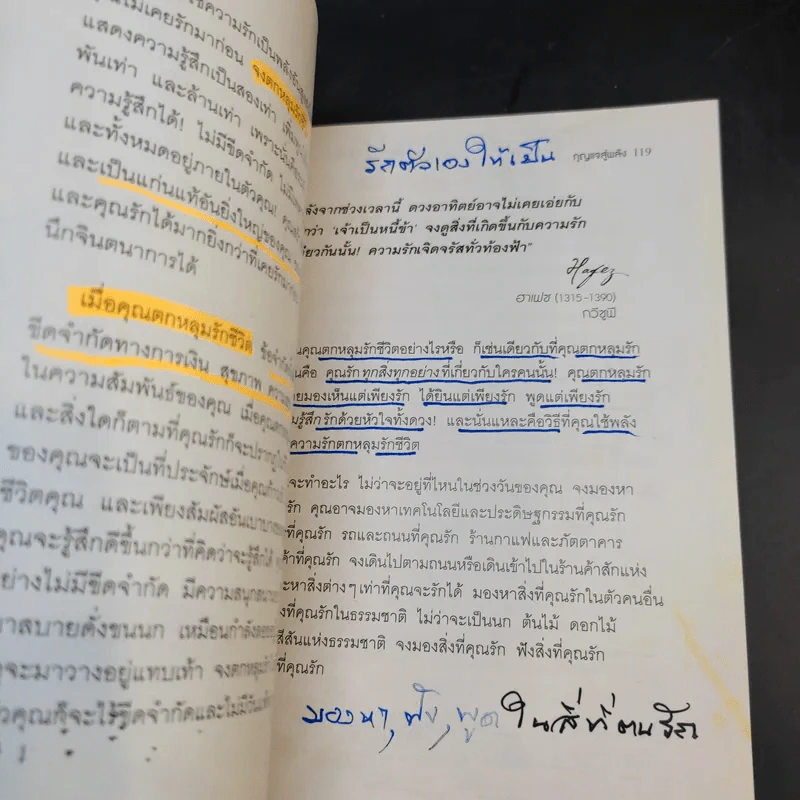 ใช้ความรักเป็นพลังอัน
ไม่เคยรักมาก่อน จงตกหลุมรัก
แสดงความรู้สึกเป็นสองเท่า เพิ่ม
พันเท่า และล้านเท่า เพราะนั่นคือ
ความรู้สึกได้! ไม่มีขีดจำกัด ไม่มี
และทั้งหมดอยู่ภายในตัวคุณ!
และเป็นแก่นแท้อันยิ่งใหญ่ของคุณ
และคุณรักได้มากยิ่งกว่าที่เคยรักมา
นึกจินตนาการได้
เมื่อคุณตกหลุมรักชีวิต ข้อจำกัด
ขีดจำกัดทางการเงิน สุขภาพ ความ
ในความสัมพันธ์ของคุณ เมื่อคุณตก
และสิ่งใดก็ตามที่คุณรักก็จะปรากฏ
ของคุณจะเป็นที่ประจักษ์เมื่อคุณก้าว
ชีวิตคุณ และเพียงสัมผัสอันเบาบาง
คุณจะรู้สึกดีขึ้นกว่าที่คิดว่าจะรู้สึกได้
อย่างไม่มีขีดจำกัด มีความสนุกสนาน
เบาสบายดั่งขนนก เหมือนกำลังลอย
จะมาวางอยู่แทบเท้า จงตกหลุมรัก
ตัวคุณก็จะไร้ขีดจำกัดและไม่มีวัน
รักตัวเองให้เป็น กุญแจสู่พลัง 119
ลังจากช่วงเวลานี้ ดวงอาทิตย์อาจไม่เคยเอ่ยกับ
กว่า ‘เจ้าเป็นหนี้ข้า’ จงดูสิ่งที่เกิดขึ้นกับความรัก
ียวกันนั้น! ความรักเจิดจรัสทั่วท้องฟ้า”
Hafez
ฮาเฟซ (1315-1390)
กวีซูฟี
นคุณตกหลุมรักชีวิตอย่างไรหรือ ก็เช่นเดียวกับที่คุณตกหลุมรัก
นคือ คุณรักทุกสิ่งทุกอย่างที่เกี่ยวกับใครคนนั้น! คุณตกหลุมรัก
ยมองเห็นแต่เพียงรัก ได้ยินแต่เพียงรัก พูดแต่เพียงรัก
รู้สึกรักด้วยหัวใจทั้งดวง! และนั่นแหละคือวิธีที่คุณใช้พลัง
ความรักตกหลุมรักชีวิต
จะทำอะไร ไม่ว่าจะอยู่ที่ไหนในช่วงวันของคุณ จงมองหา
รัก คุณอาจมองหาเทคโนโลยีและประดิษฐกรรมที่คุณรัก
ที่คุณรัก รถและถนนที่คุณรัก ร้านกาแฟและภัตตาคาร
ค้าที่คุณรัก จงเดินไปตามถนนหรือเดินเข้าไปในร้านค้าสักแห่ง
ะหาสิ่งต่างๆ เท่าที่คุณจะรักได้ มองหาสิ่งที่คุณรักในตัวคนอื่น
งที่คุณรักในธรรมชาติ ไม่ว่าจะเป็นนก ต้นไม้ ดอกไม้
สีสันแห่งธรรมชาติ จงมองสิ่งที่คุณรัก ฟังสิ่งที่คุณรัก
ที่คุณรัก
มองหา, ฟัง, พูด ในสิ่งที่ตนรัก